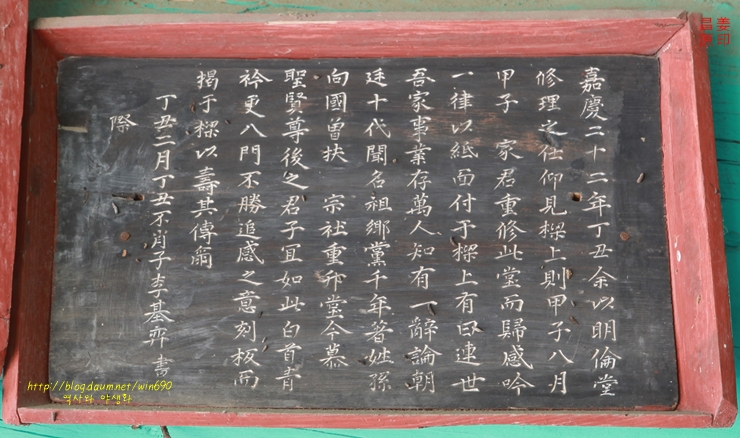 嘉慶二十二年丁丑余以明倫堂
修理之任仰見樑上則甲子八月
甲子 家君重修此堂而歸感吟
一律以紙面付于樑上有曰連世
吾家事業存萬人知有一辭論朝
廷十代聞名祖鄉黨千年著姓孫
向國曾扶 宗社重 堂今慕
聖賢尊後之君子宜如此白首青
衿更八門不勝追感之意刻板而
揭于樑以壽其傳
丁丑二月丁丑不肖子李基 書
際
http://blog.daum.net/win690
역사와 야생화